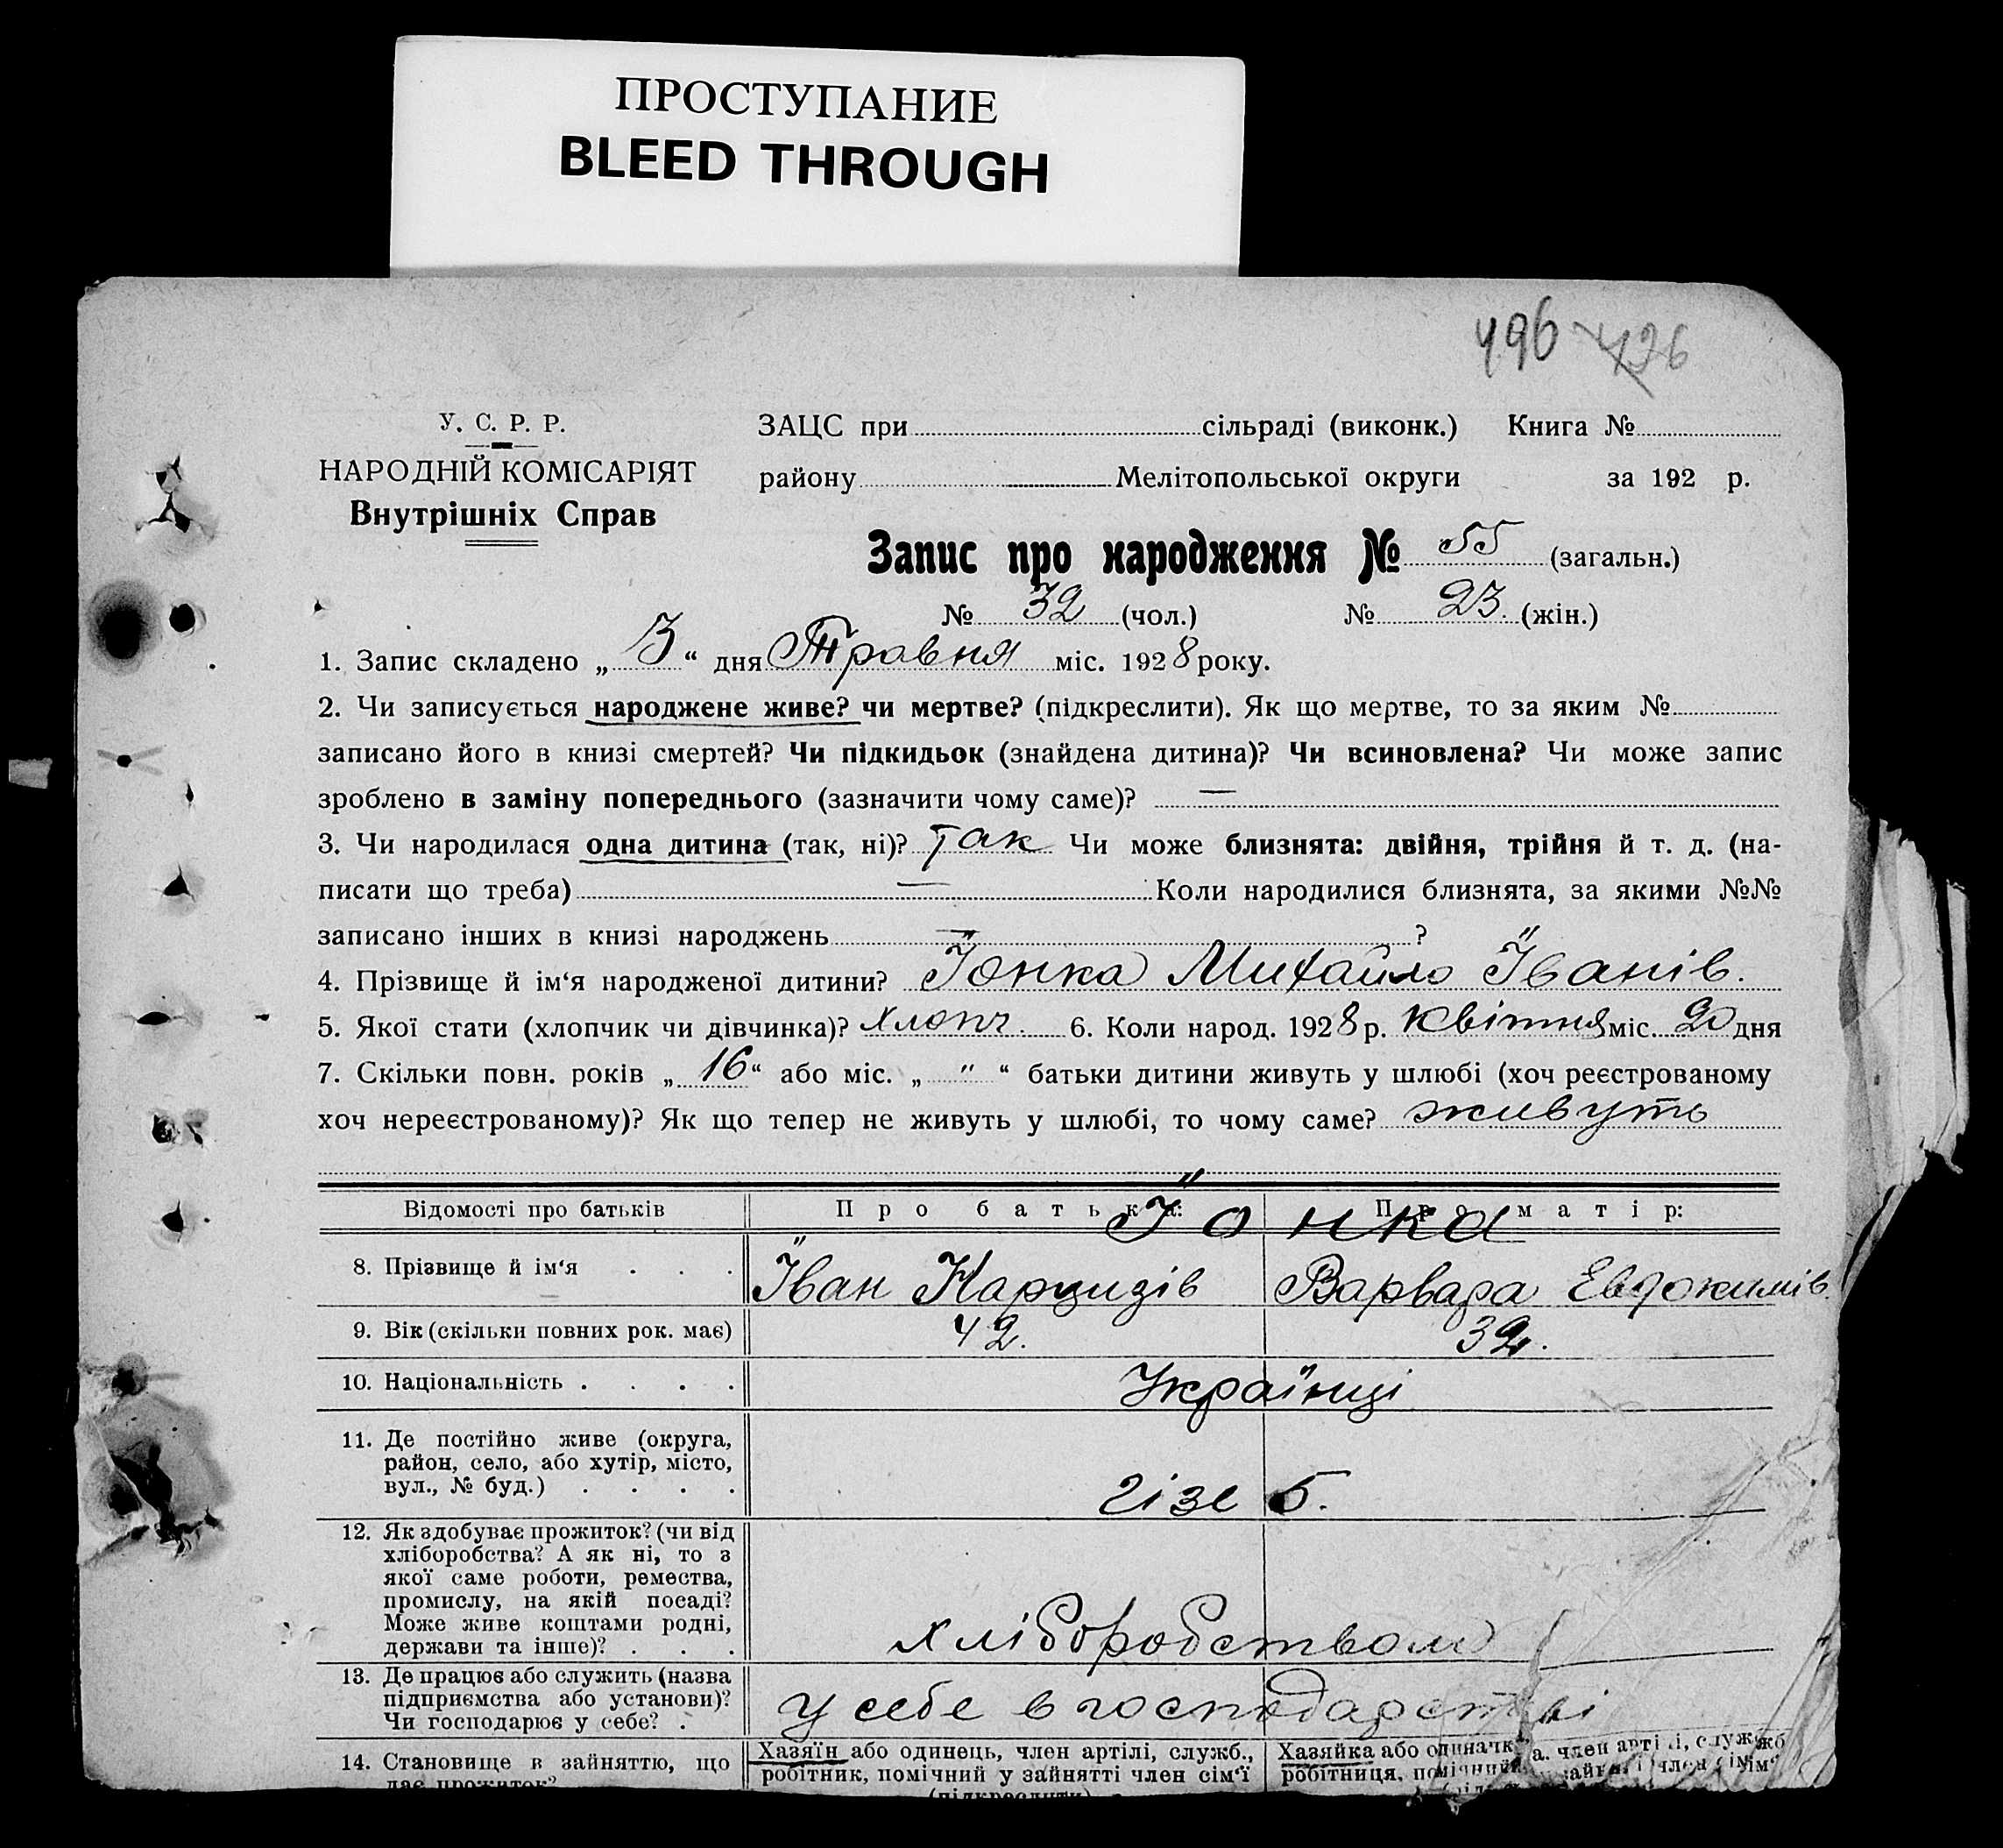 ПРОСТУПАНИЕ
BLEED THROUGH
496 426
У. С. Р. Р.
НАРОДНІЙ КОМІСАРІЯТ
Внутрішніх Справ
ЗАЦС при сільраді (виконк.) Книга №
району Мелітопольської округи за 192 р.
Запис про народження № 55 (загальн.)
№ 32 (чол.) № 23. (жін.)
1. Запис складено „ 3 “ дня Травня міс. 1928 року.
2. Чи записується народжене живе? чи мертве? (підкреслити). Як що мертве, то за яким №
записано його в книзі смертей? Чи підкидьок (знайдена дитина)? Чи всиновлена? Чи може запис
зроблено в заміну попереднього (зазначити чому саме)? —
3. Чи народилася одна дитина (так, ні)? так Чи може близнята: двійня, трійня й т. д. (на-
писати що треба) — Коли народилися близнята, за якими №№
записано інших в книзі народжень — ?
4. Прізвище й ім‘я народженої дитини? Їонка Михайло Їванів.
5. Якої стати (хлопчик чи дівчинка)? хлопч. 6. Коли народ. 1928 р. Квітня міс. 20 дня
7. Скільки повн. років „ 16 “ або міс. „ " “ батьки дитини живуть у шлюбі (хоч реєстрованому
хоч нереєстрованому)? Як що тепер не живуть у шлюбі, то чому саме? живуть
Відомості про батьків Про батька: Про матір:
Їонка
8. Прізвище й ім‘я . . . Їван Нарцизів Варвара Евдокимів.
9. Вік (скільки повних рок. має) 42. 32.
10. Національність . . . . Українці
11. Де постійно живе (округа,
район, село, або хутір, місто,
вул., № буд.) . . . .
12. Як здобуває прожиток? (чи від
хліборобства? А як ні, то з
якої саме роботи, ремества,
промислу, на якій посаді?
Може живе коштами родні,
держави та інше)? . . .
хліборобством
13. Де працює або служить (назва
підприємства або установи)?
Чи господарює у себе? .
у себе в господарстві
14. Становище в зайняттю, що
дає прожиток?
Хазяїн або одинець, член артілі, служб.,
робітник, помічний у зайнятті член сім‘ї
(підкреслити)
Хазяйка або одиначка, член артілі, служб
робітниця,